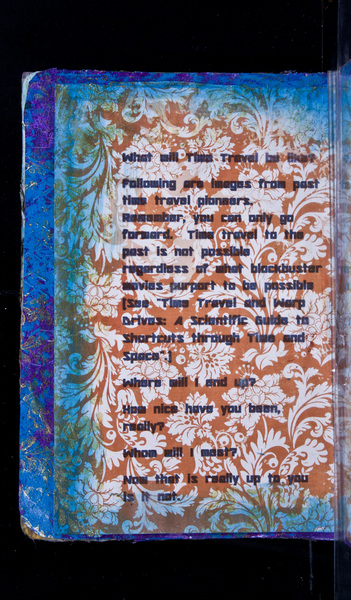 What will Time Travel be like?
Following are images from past
time travel pioneers.
Remember, you can only go
forward.  Time travel to the
past is not possible
regardless of what blockbuster
movies purport to be possible
(See "Time Travel and Warp
Drives: A Scientific Guide to
Shortcuts through Time and
Space".)
Where will I end up?
How nice have you been,
really?
Whom will I meet?
Now that is really up to you
is it not.